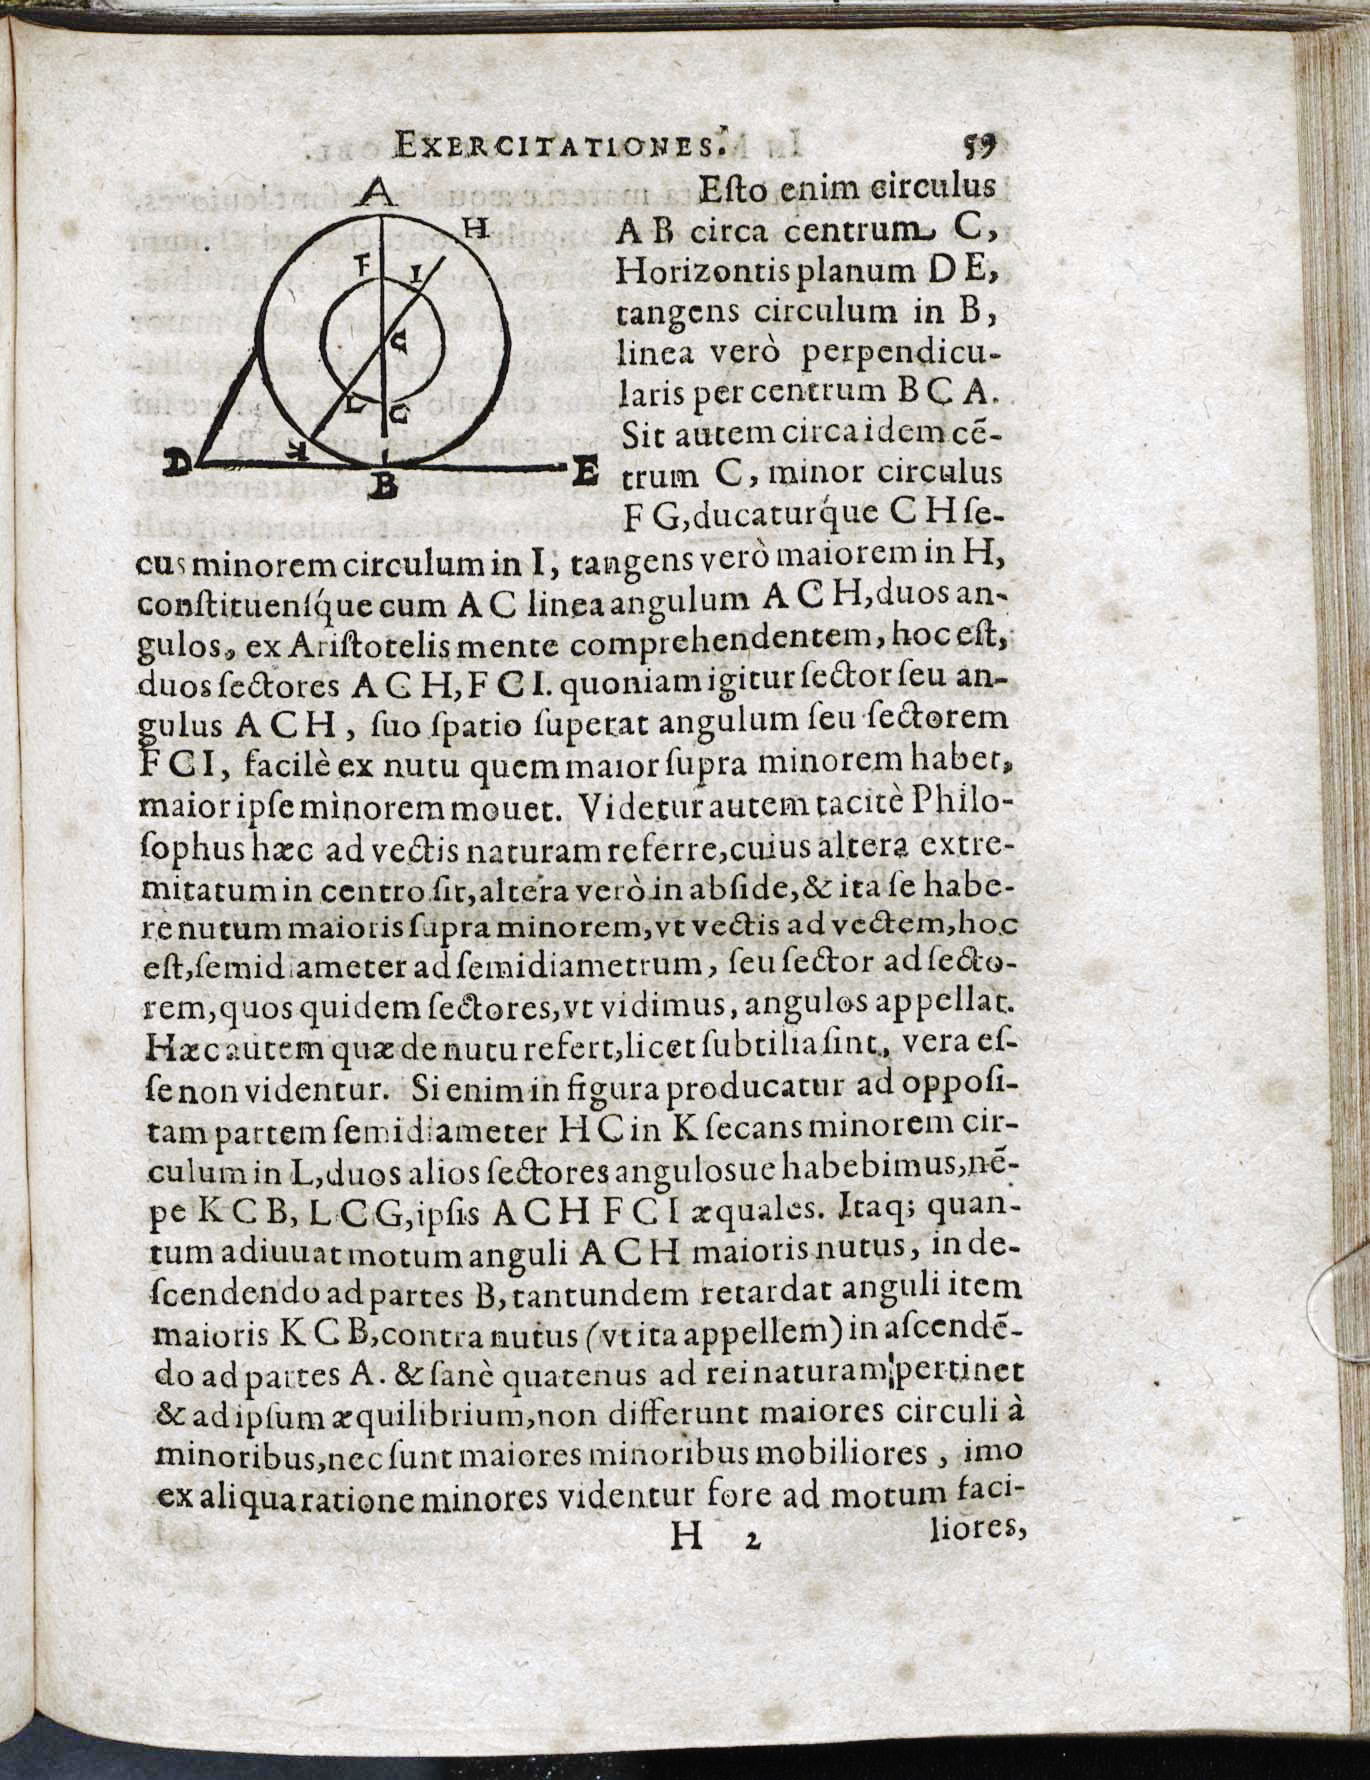 EXERCITATIONES. 59
A
H
F
I
C
L
G
K
D
B
E
Eſto enim circulus
A B circa centrum C,
Horizontis planum D E,
tangens circulum in B,
linea verò perpendicu-
laris per centrum B C A.
Sit autem circa idem cẽ-
trum C, minor circulus
F G, ducaturq́ue C H ſe-
cus minorem circulum in I, tangens verò maiorem in H,
conſtituenſq́ue cum A C linea angulum A C H, duos an-
gulos, ex Ariſtotelis mente comprehendentem, hoc eſt,
duos ſectores A C H, F C I. quoniam igitur ſector ſeu an-
gulus A C H, ſuo ſpatio ſuperat angulum ſeu ſectorem
F C I, facilè ex nutu quem maior ſupra minorem habet,
maior ipſe minorem mouet. Videtur autem tacitè Philo-
ſophus hæc ad vectis naturam referre, cuius altera extre-
mitatum in centro ſit, altera verò in abſide, & ita ſe habe-
re nutum maioris ſupra minorem, vt vectis ad vectem, hoc
eſt, ſemidiameter ad ſemidiametrum, ſeu ſector ad ſecto-
rem, quos quidem ſectores, vt vidimus, angulos appellat.
Hæc autem quæ de nutu refert, licet ſubtilia ſint, vera eſ-
ſe non videntur. Si enim in figura producatur ad oppoſi-
tam partem ſemidiameter H C in K ſecans minorem cir-
culum in L, duos alios ſectores angulosue habebimus, nẽ-
pe K C B, L C G, ipſis A C H F C I æquales. Itaq; quan-
tum adiuuat motum anguli A C H maioris nutus, in de-
ſcendendo ad partes B, tantundem retardat anguli item
maioris K C B, contra nutus (vt ita appellem) in aſcendẽ-
do ad partes A. & ſanè quatenus ad rei naturam pertinet
& ad ipſum æquilibrium, non differunt maiores circuli à
minoribus, nec ſunt maiores minoribus mobiliores, imo
ex aliqua ratione minores videntur fore ad motum faci-
H 2 liores,